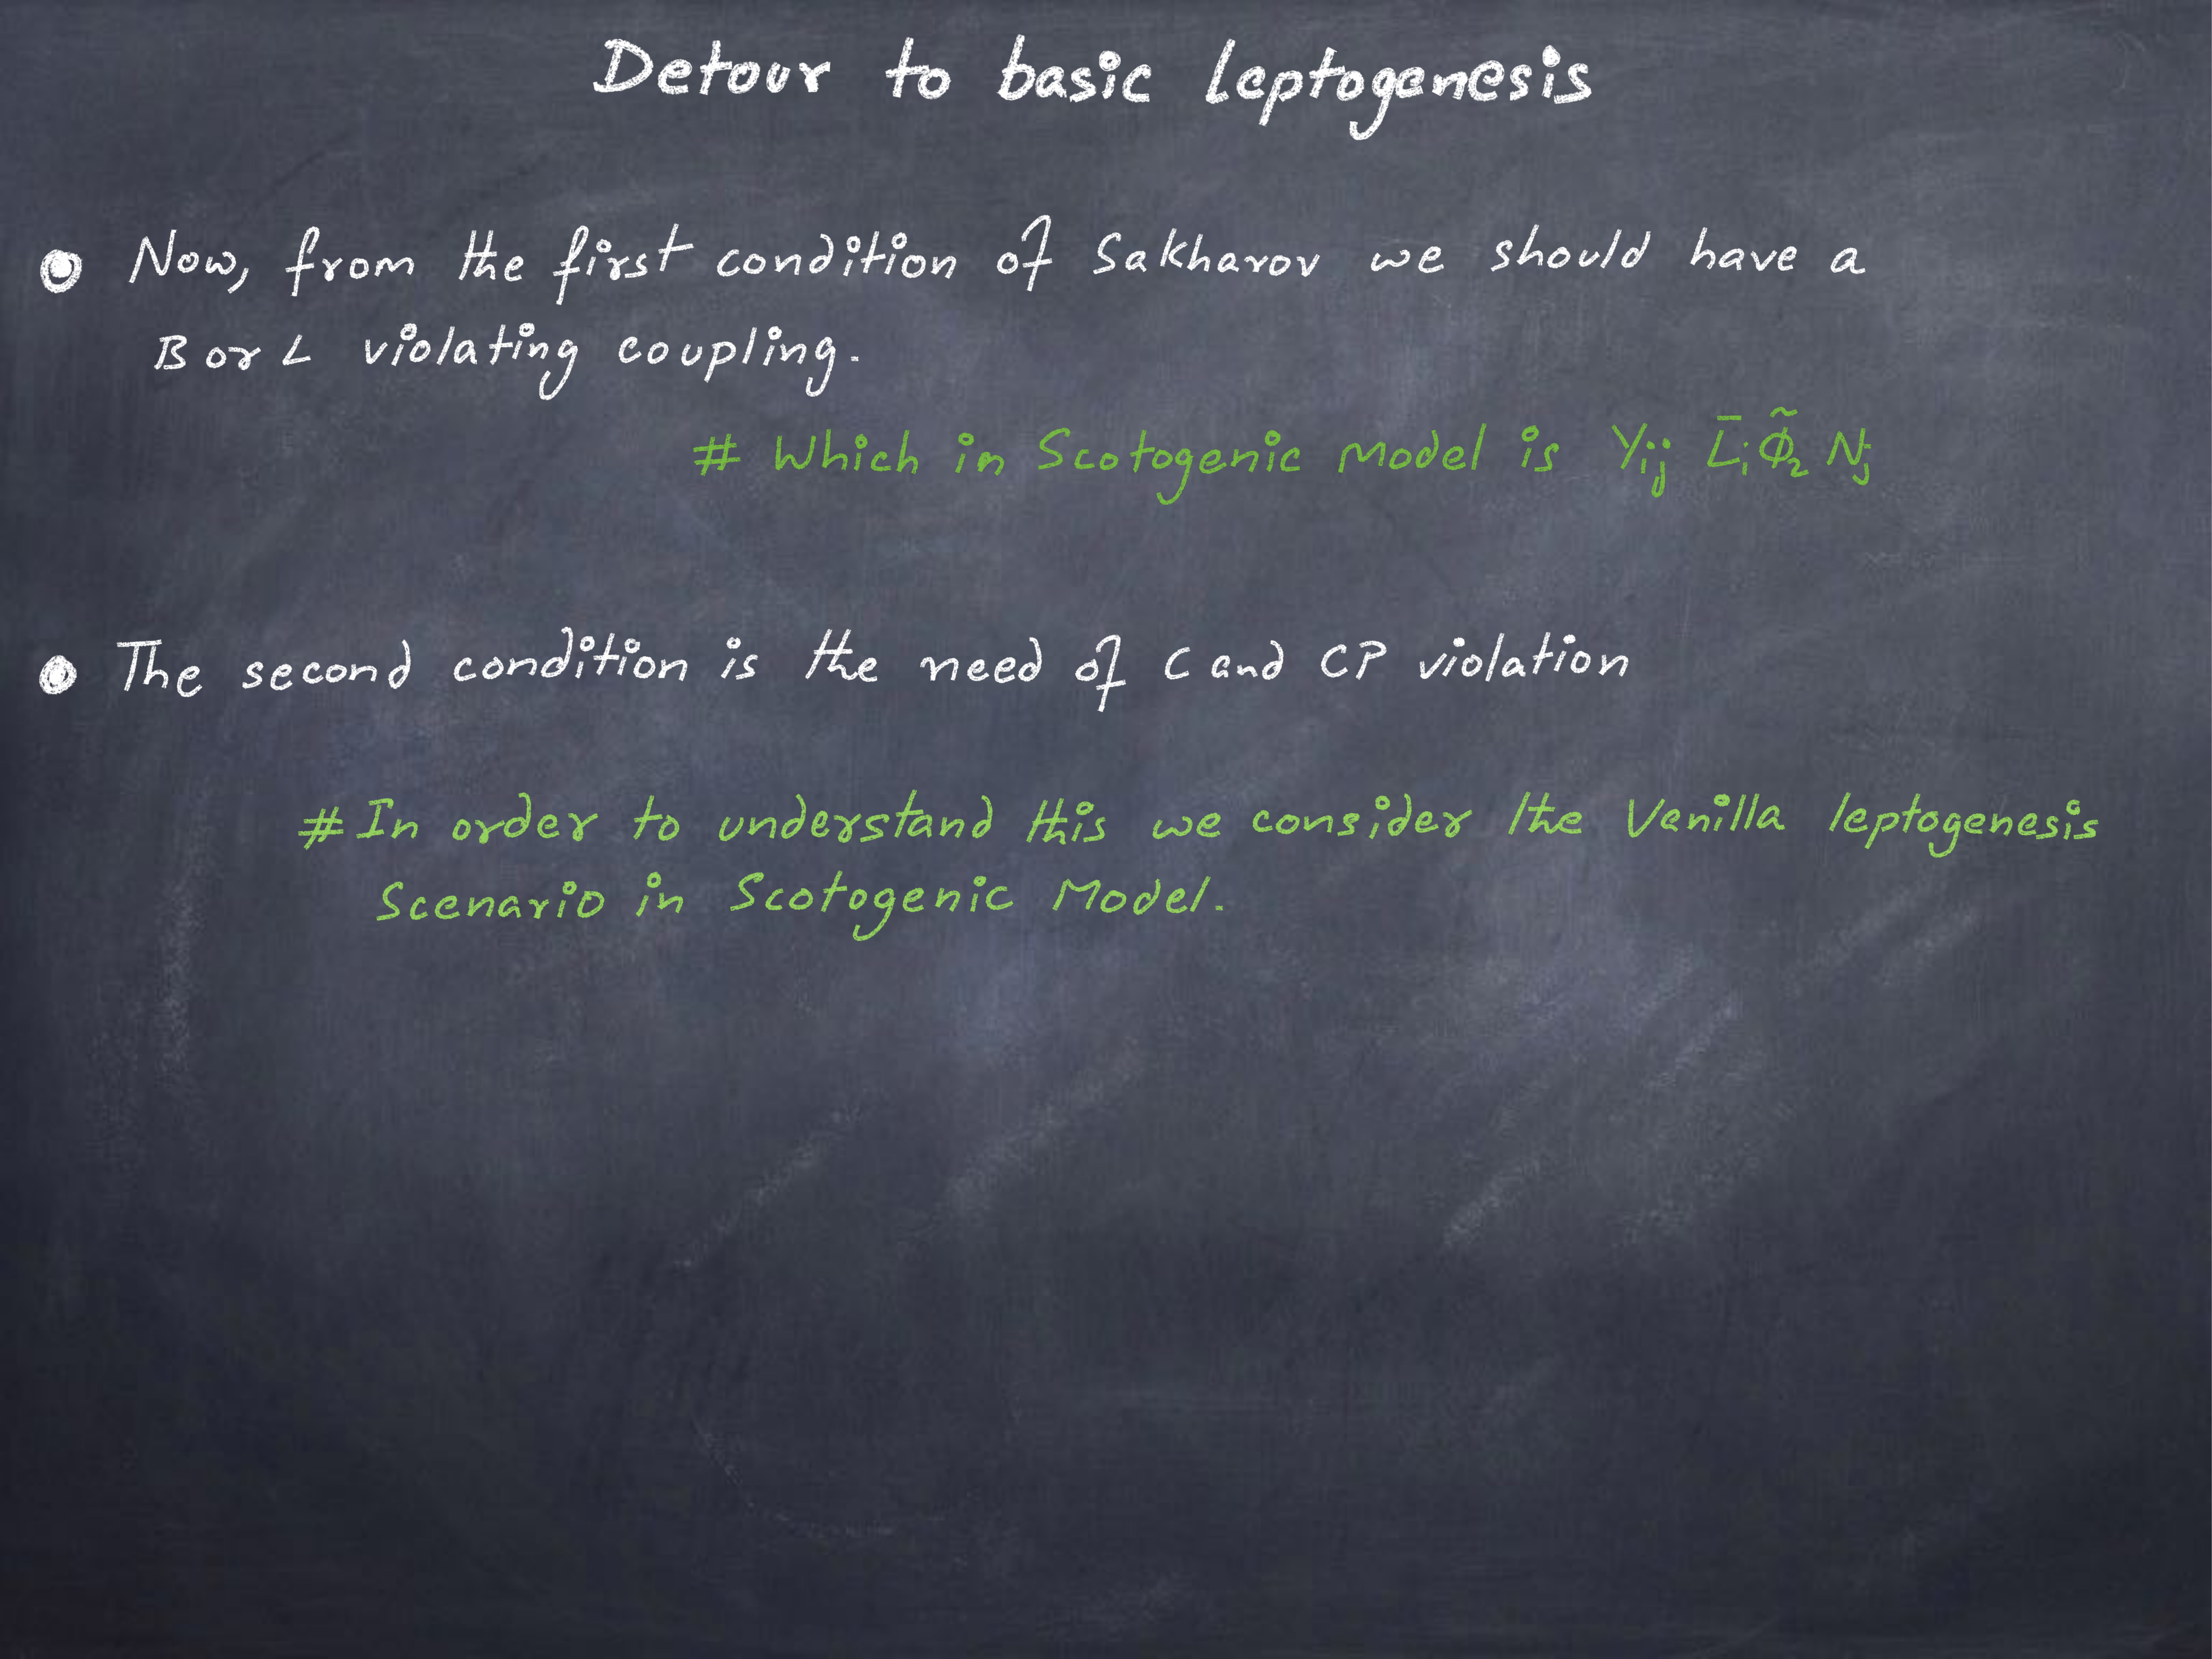 Detour to basic leptogenesis
Now, from the first condition of Sakharov we should have a
B or L violating coupling.
# Which in Scotogenic Model is Yᵢⱼ L̄ᵢ Φ̃₂ Nⱼ
The second condition is the need of C and CP violation
# In order to understand this we consider the Vanilla leptogenesis
Scenario in Scotogenic Model.